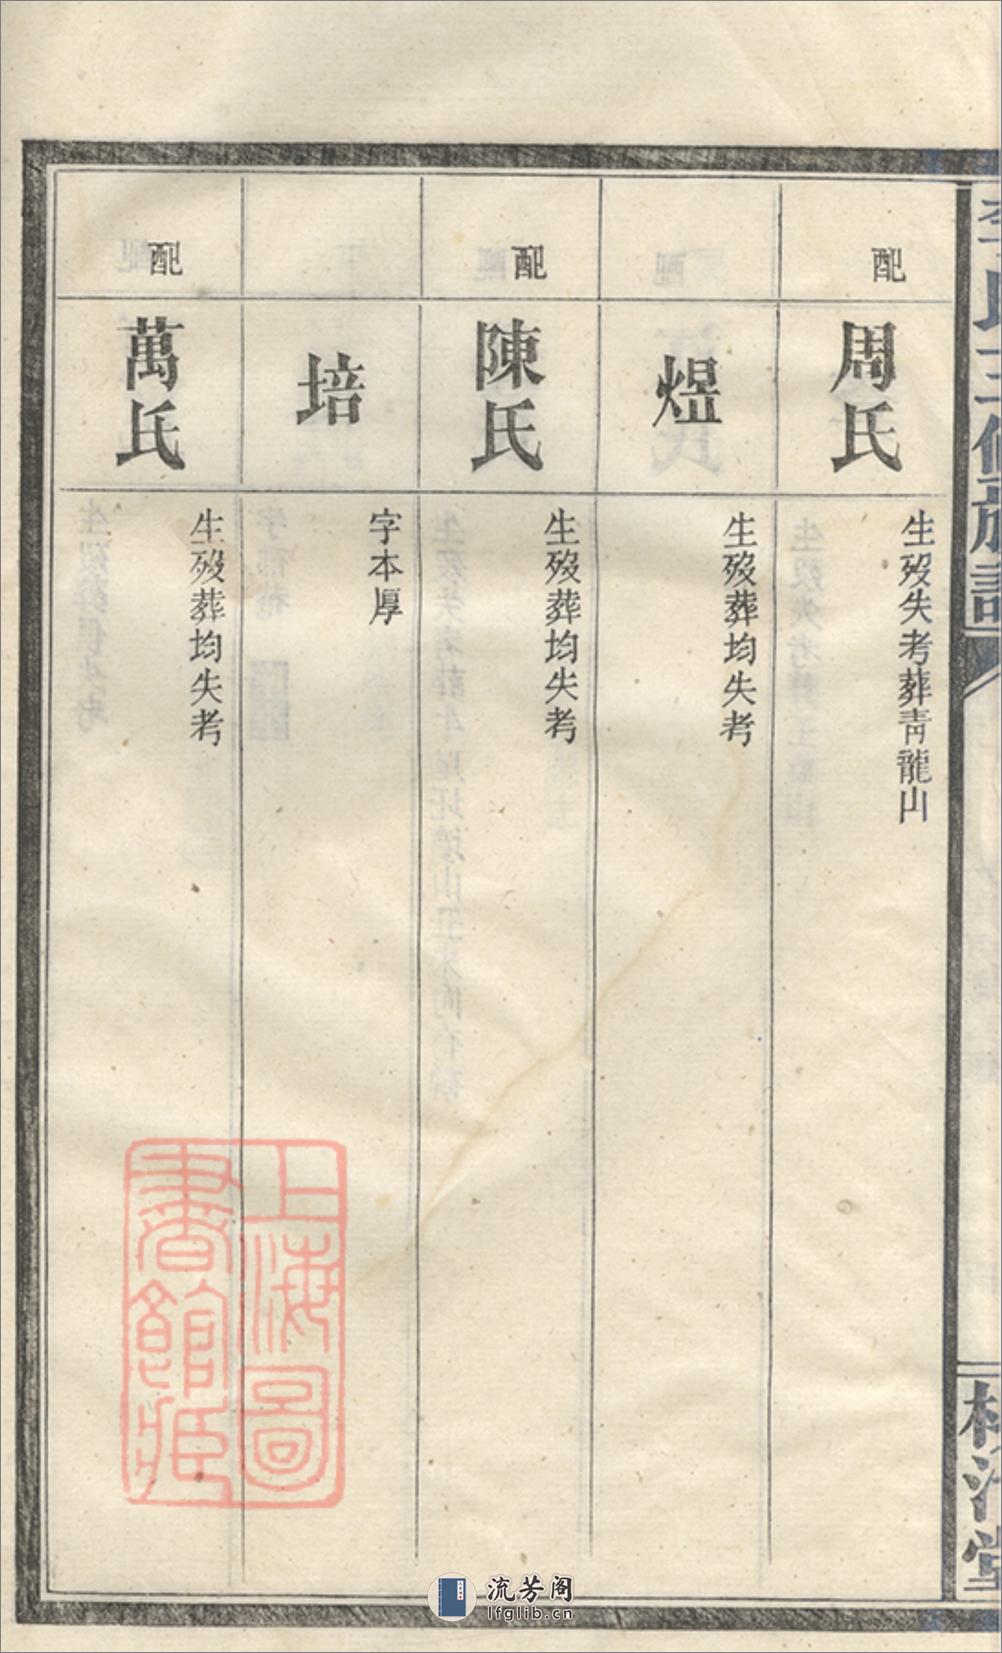 李氏三修族譜
配
周氏
生歿失考葬青龍山
煜
生歿葬均失考
配
陳氏
生歿葬均失考
培
字本厚
配
萬氏
生歿葬均失考
上海圖
書館藏
流芳阁
lfglib.cn